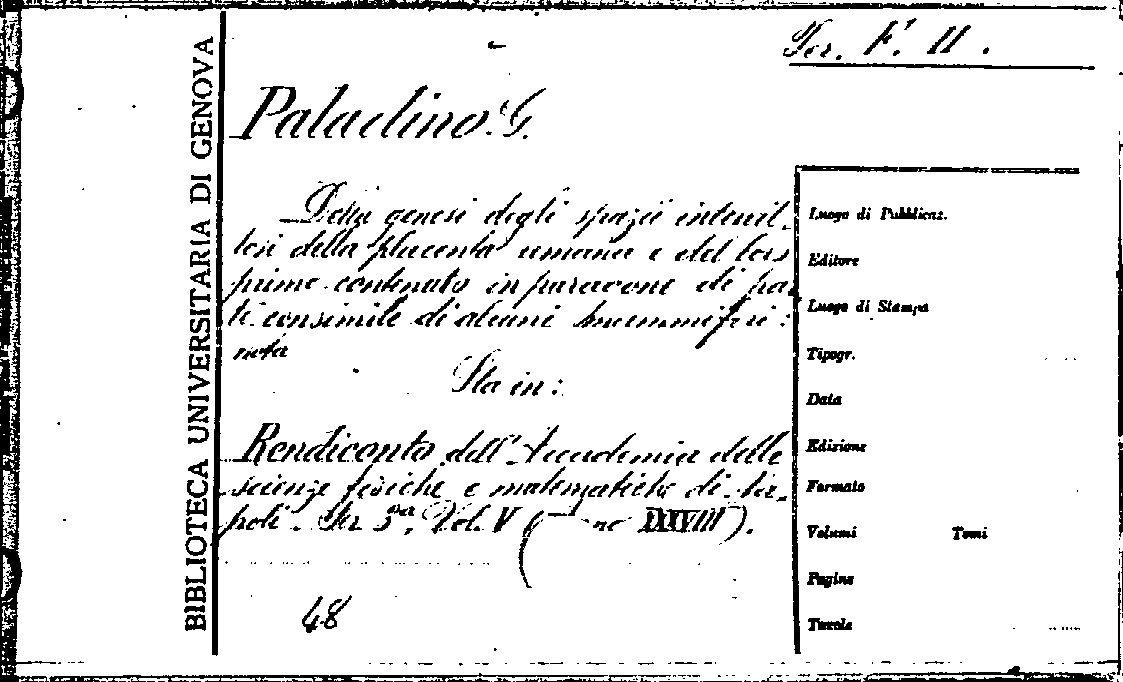 BIBLIOTECA UNIVERSITARIA DI GENOVA
Ser. F. II.
Paladino G.
Della genesi degli spazii intervil-
losi della placenta umana e del loro
primo contenuto in paragone di par
ti consimile di alcuni mammiferi:
nota
Sta in:
Rendiconto dell'Accademia delle
scienze fisiche e matematiche di Na-
poli. Ser 3ª, Vol. V (anno XXXVIII).
48
Luogo di Pubblicaz.
Editore
Luogo di Stampa
Tipogr.
Data
Edizione
Formato
Volumi Tomi
Pagine
Tavole